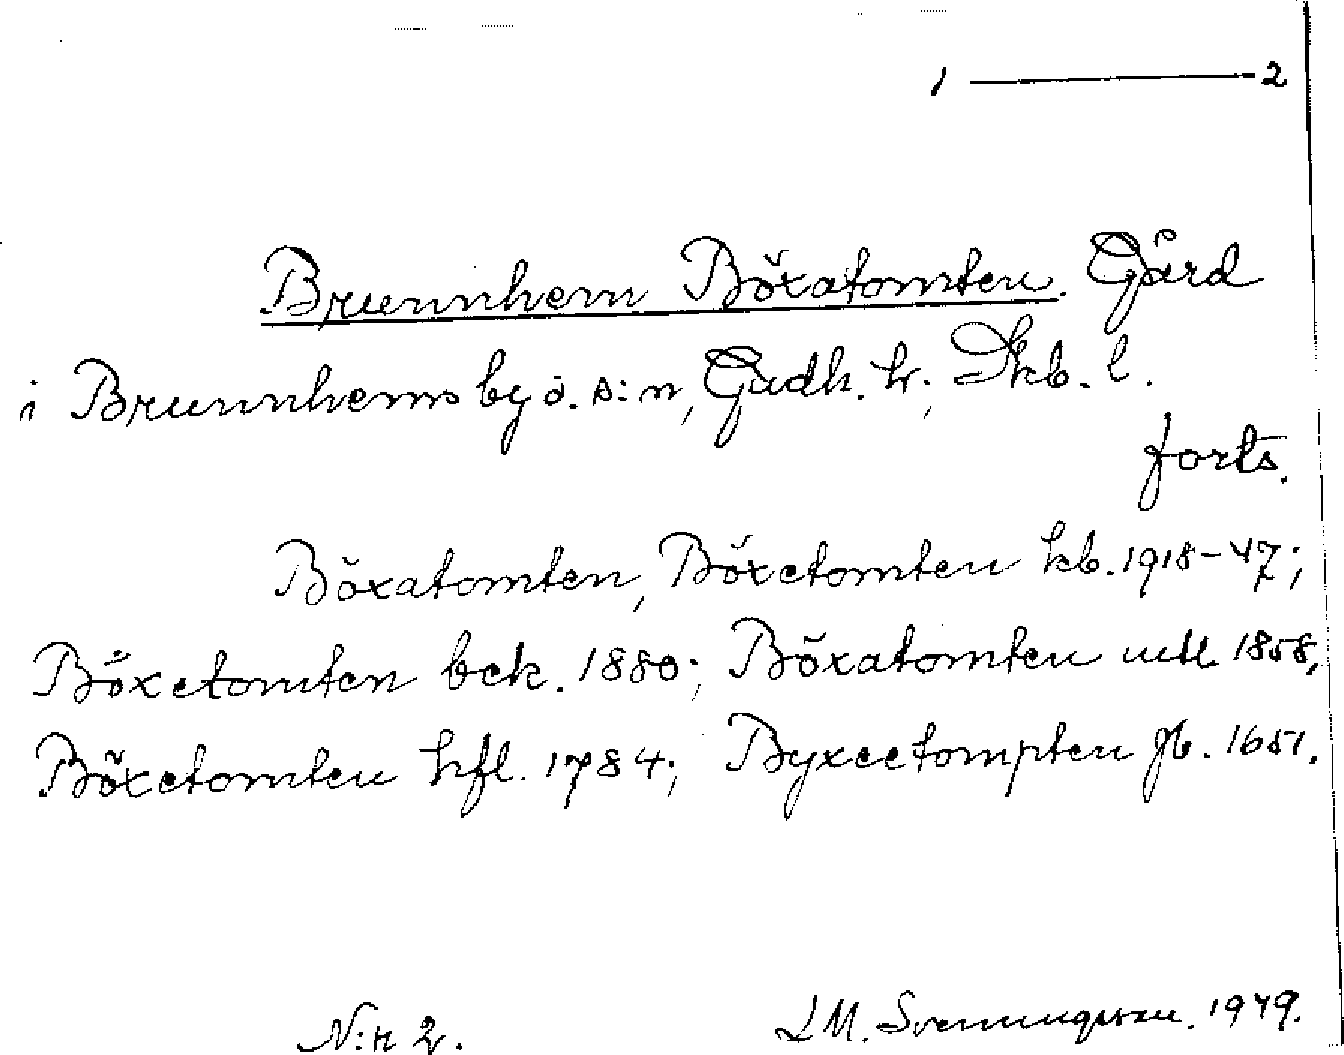 1 ——— 2
Brunnhem Böxatomten. Gård
i Brunnhems by o. s:n, Gudh. hr, Skb. l.
forts.
Böxatomten, Böxetomten kb. 1918-47;
Böxetomten bek. 1880; Böxatomten 1858,
Böxetomten hfl. 1784; Byxeetompten jb. 1651.
N:r 2.
LM. Svenungsson. 1949.